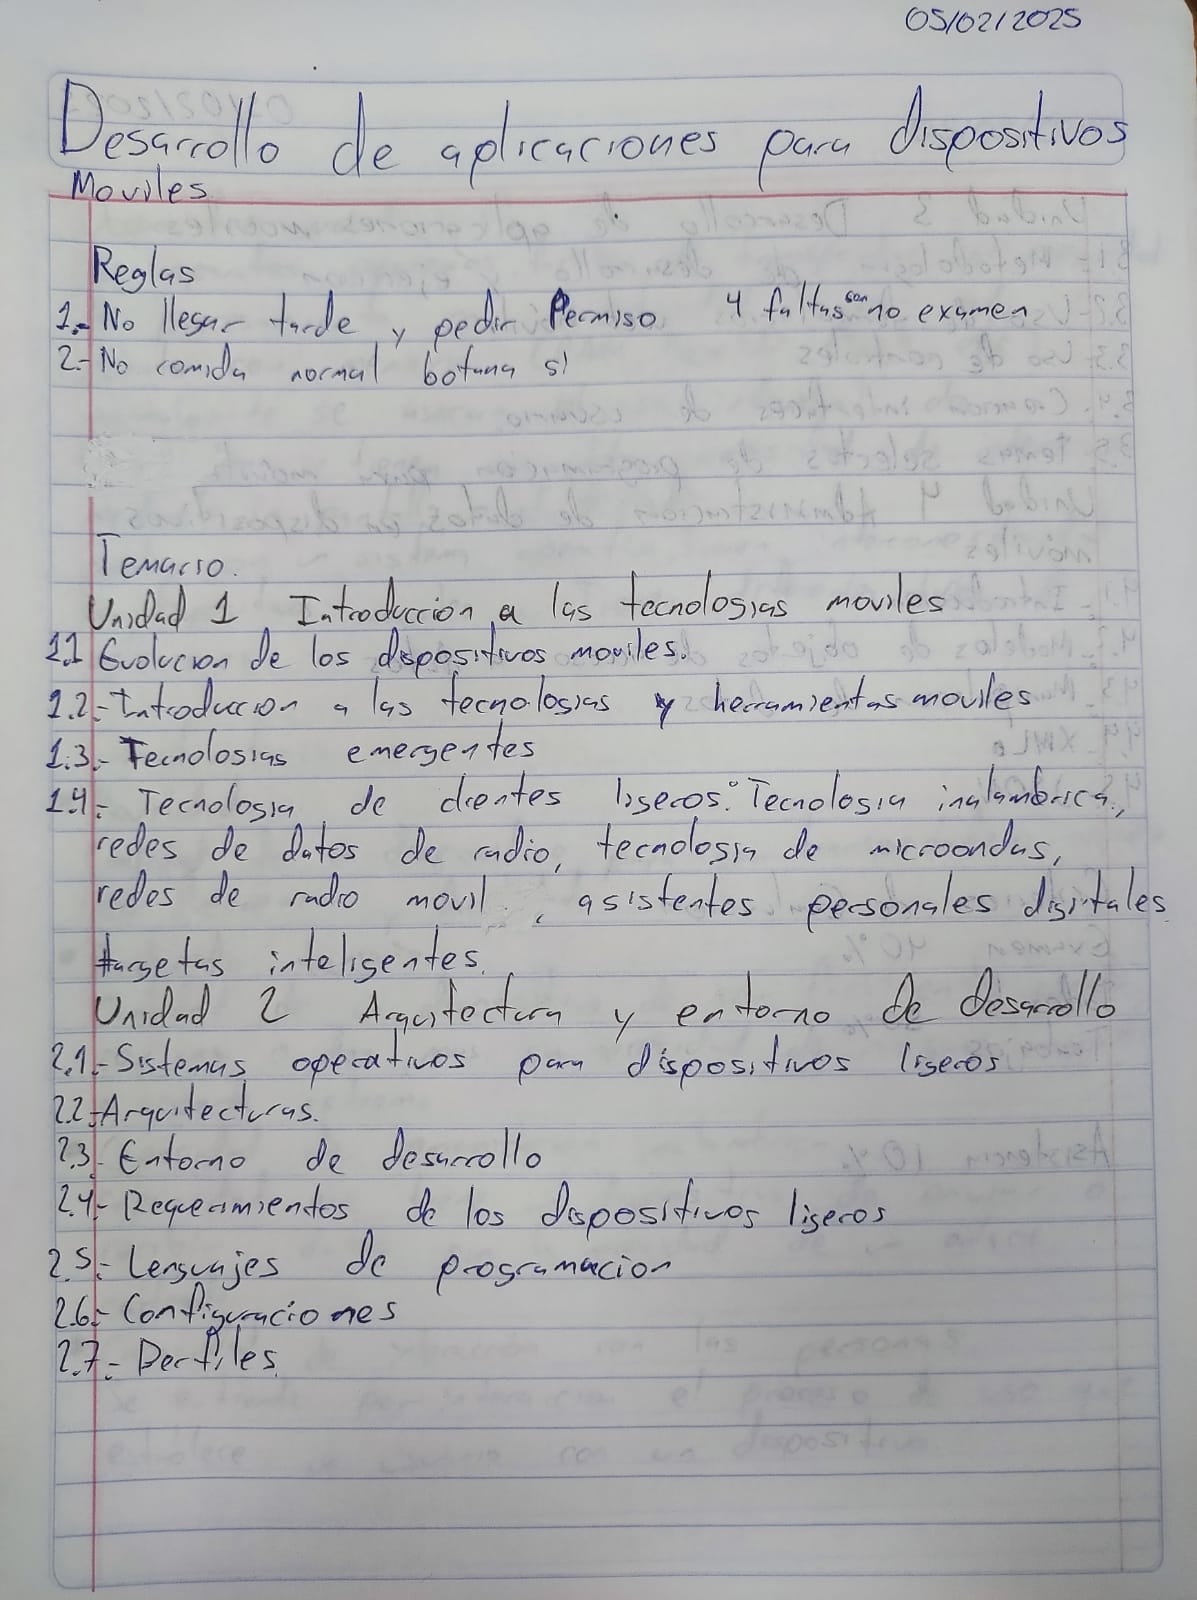 05/02/2025
Desarrollo de aplicaciones para dispositivos
Moviles.
Reglas
1.- No llegar tarde y pedir Permiso 4 faltas son no examen
2.- No comida normal botana si
Temario.
Unidad 1 Introduccion a las tecnologias moviles
1.1 Evolucion de los dispositivos moviles.
1.2.- Introduccion a las tecnologias y herramientas moviles
1.3.- Tecnologias emergentes
1.4.- Tecnologia de clientes ligeros: Tecnologia inalambrica,
redes de datos de radio, tecnologia de microondas,
redes de radio movil, asistentes personales digitales
targetas inteligentes.
Unidad 2 Arquitectura y entorno de desarrollo
2.1.- Sistemas operativos para dispositivos ligeros
2.2.- Arquitecturas.
2.3.- Entorno de desarrollo
2.4.- Requerimientos de los dispositivos ligeros
2.5.- Lenguajes de programacion
2.6.- Configuraciones
2.7.- Perfiles.